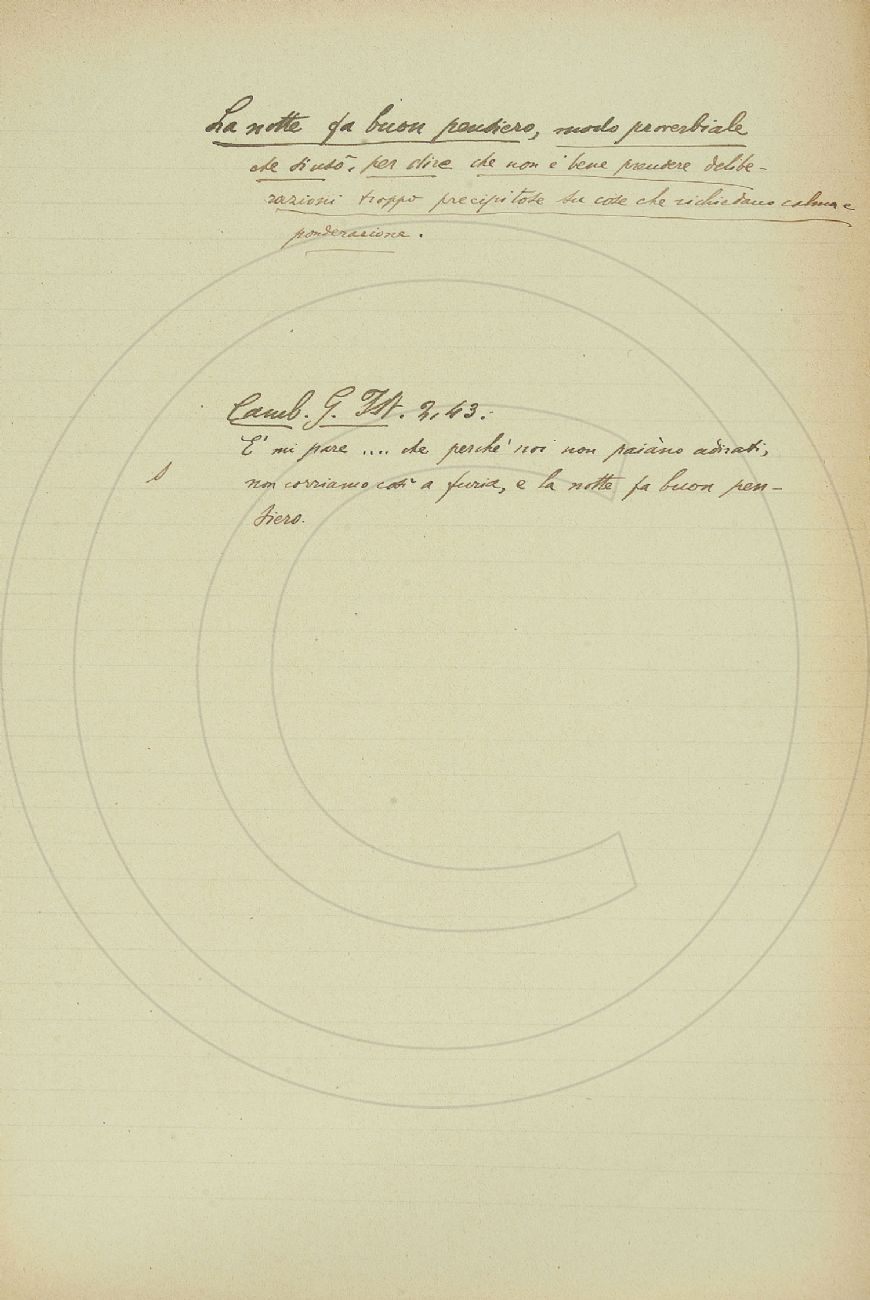 La notte fa buon pensiero, modo proverbiale
che si usò, per dire che non è bene prendere delibe-
razioni troppo precipitose su cose che richiedano calma e
ponderazione.
Camb. G. Ist. 2, 43.
E' mi pare .... che perchè noi non paiàno adirati,
non corriamo così a furia, e la notte fa buon pen-
siero.